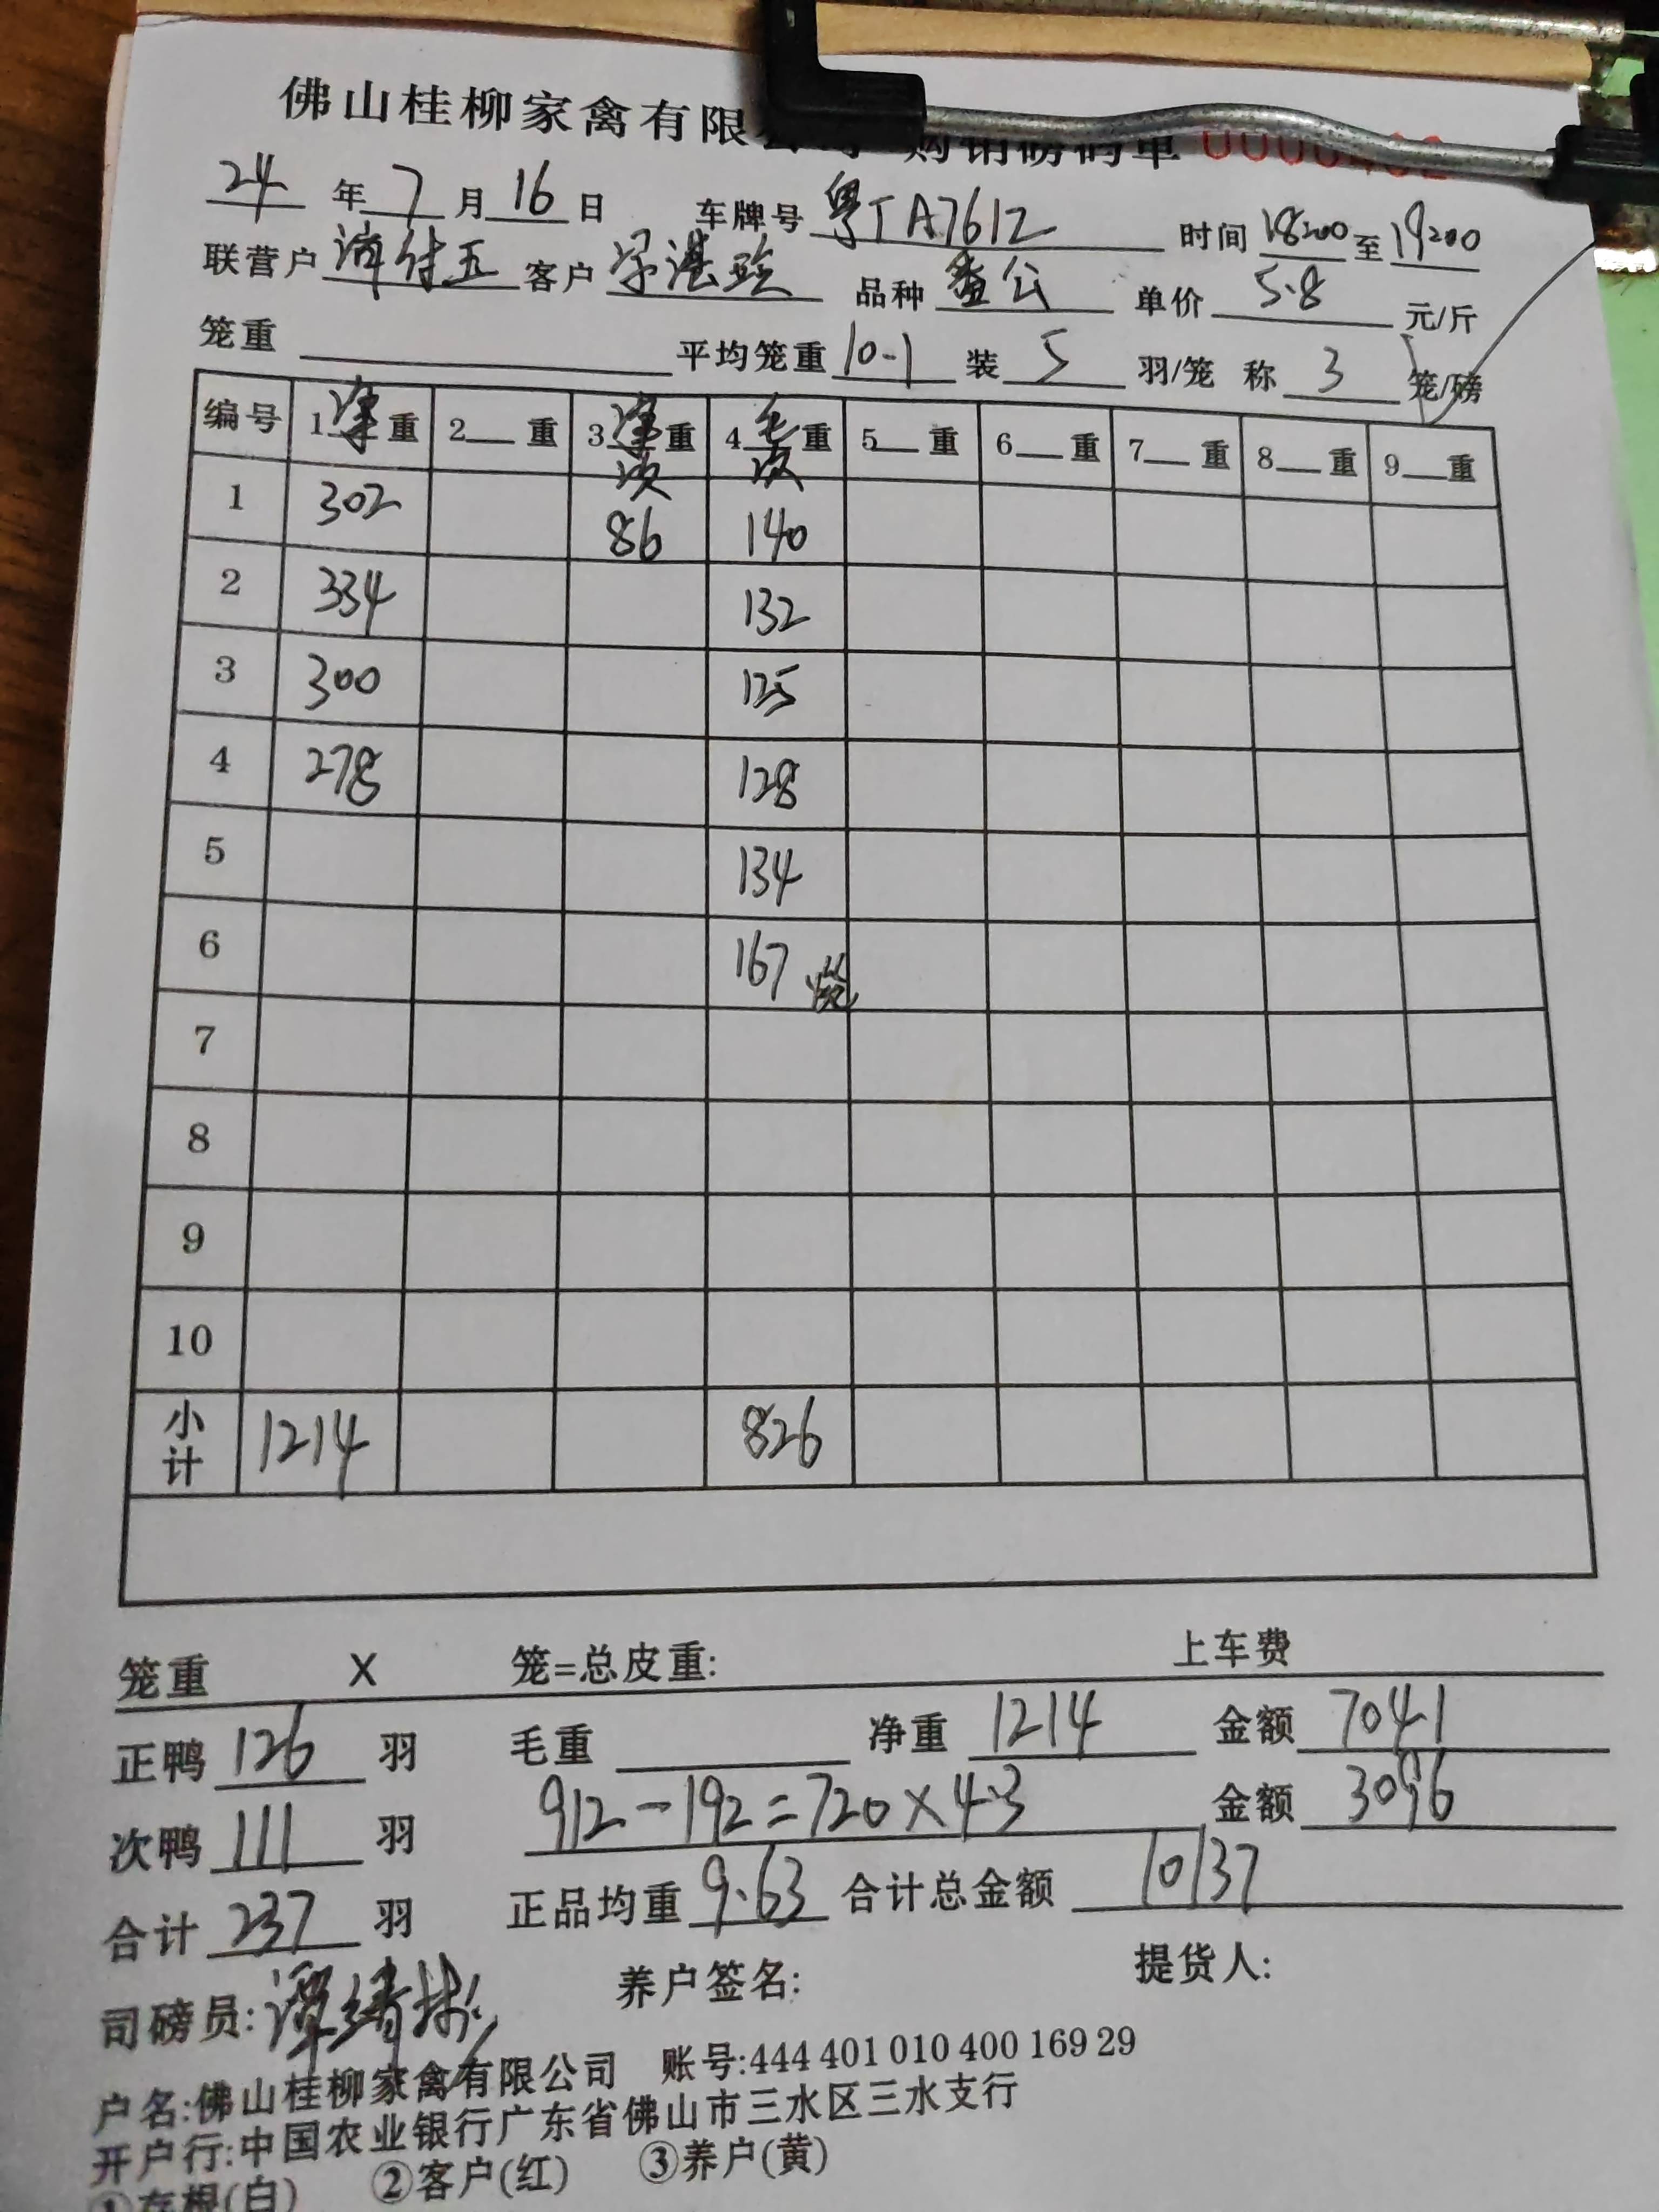 佛山桂柳家禽有限 购销磅码单
24年7月16日 车牌号 粤TA7612 时间 18:00至19:00
联营户 谭付五 客户 品种 公 单价 5.8 元/斤
笼重 平均笼重 10-1 装 5 羽/笼 称 3 笼/磅
编号 1净重 2重 3净重 4毛重 5重 6重 7重 8重 9重
次 次
1 302 86 140
2 334 132
3 300 125
4 278 128
5 134
6 167
7
8
9
10
小计 1214 826
笼重 X 笼=总皮重: 上车费
正鸭 126 羽 毛重 净重 1214 金额 7041
次鸭 111 羽 912-192=720×4.3 金额 3096
合计 237 羽 正品均重 9.63 合计总金额 10137
司磅员: 谭绮 养户签名: 提货人:
户名:佛山桂柳家禽有限公司 账号:444 401 010 400 169 29
开户行:中国农业银行广东省佛山市三水区三水支行
①存根(白) ②客户(红) ③养户(黄)